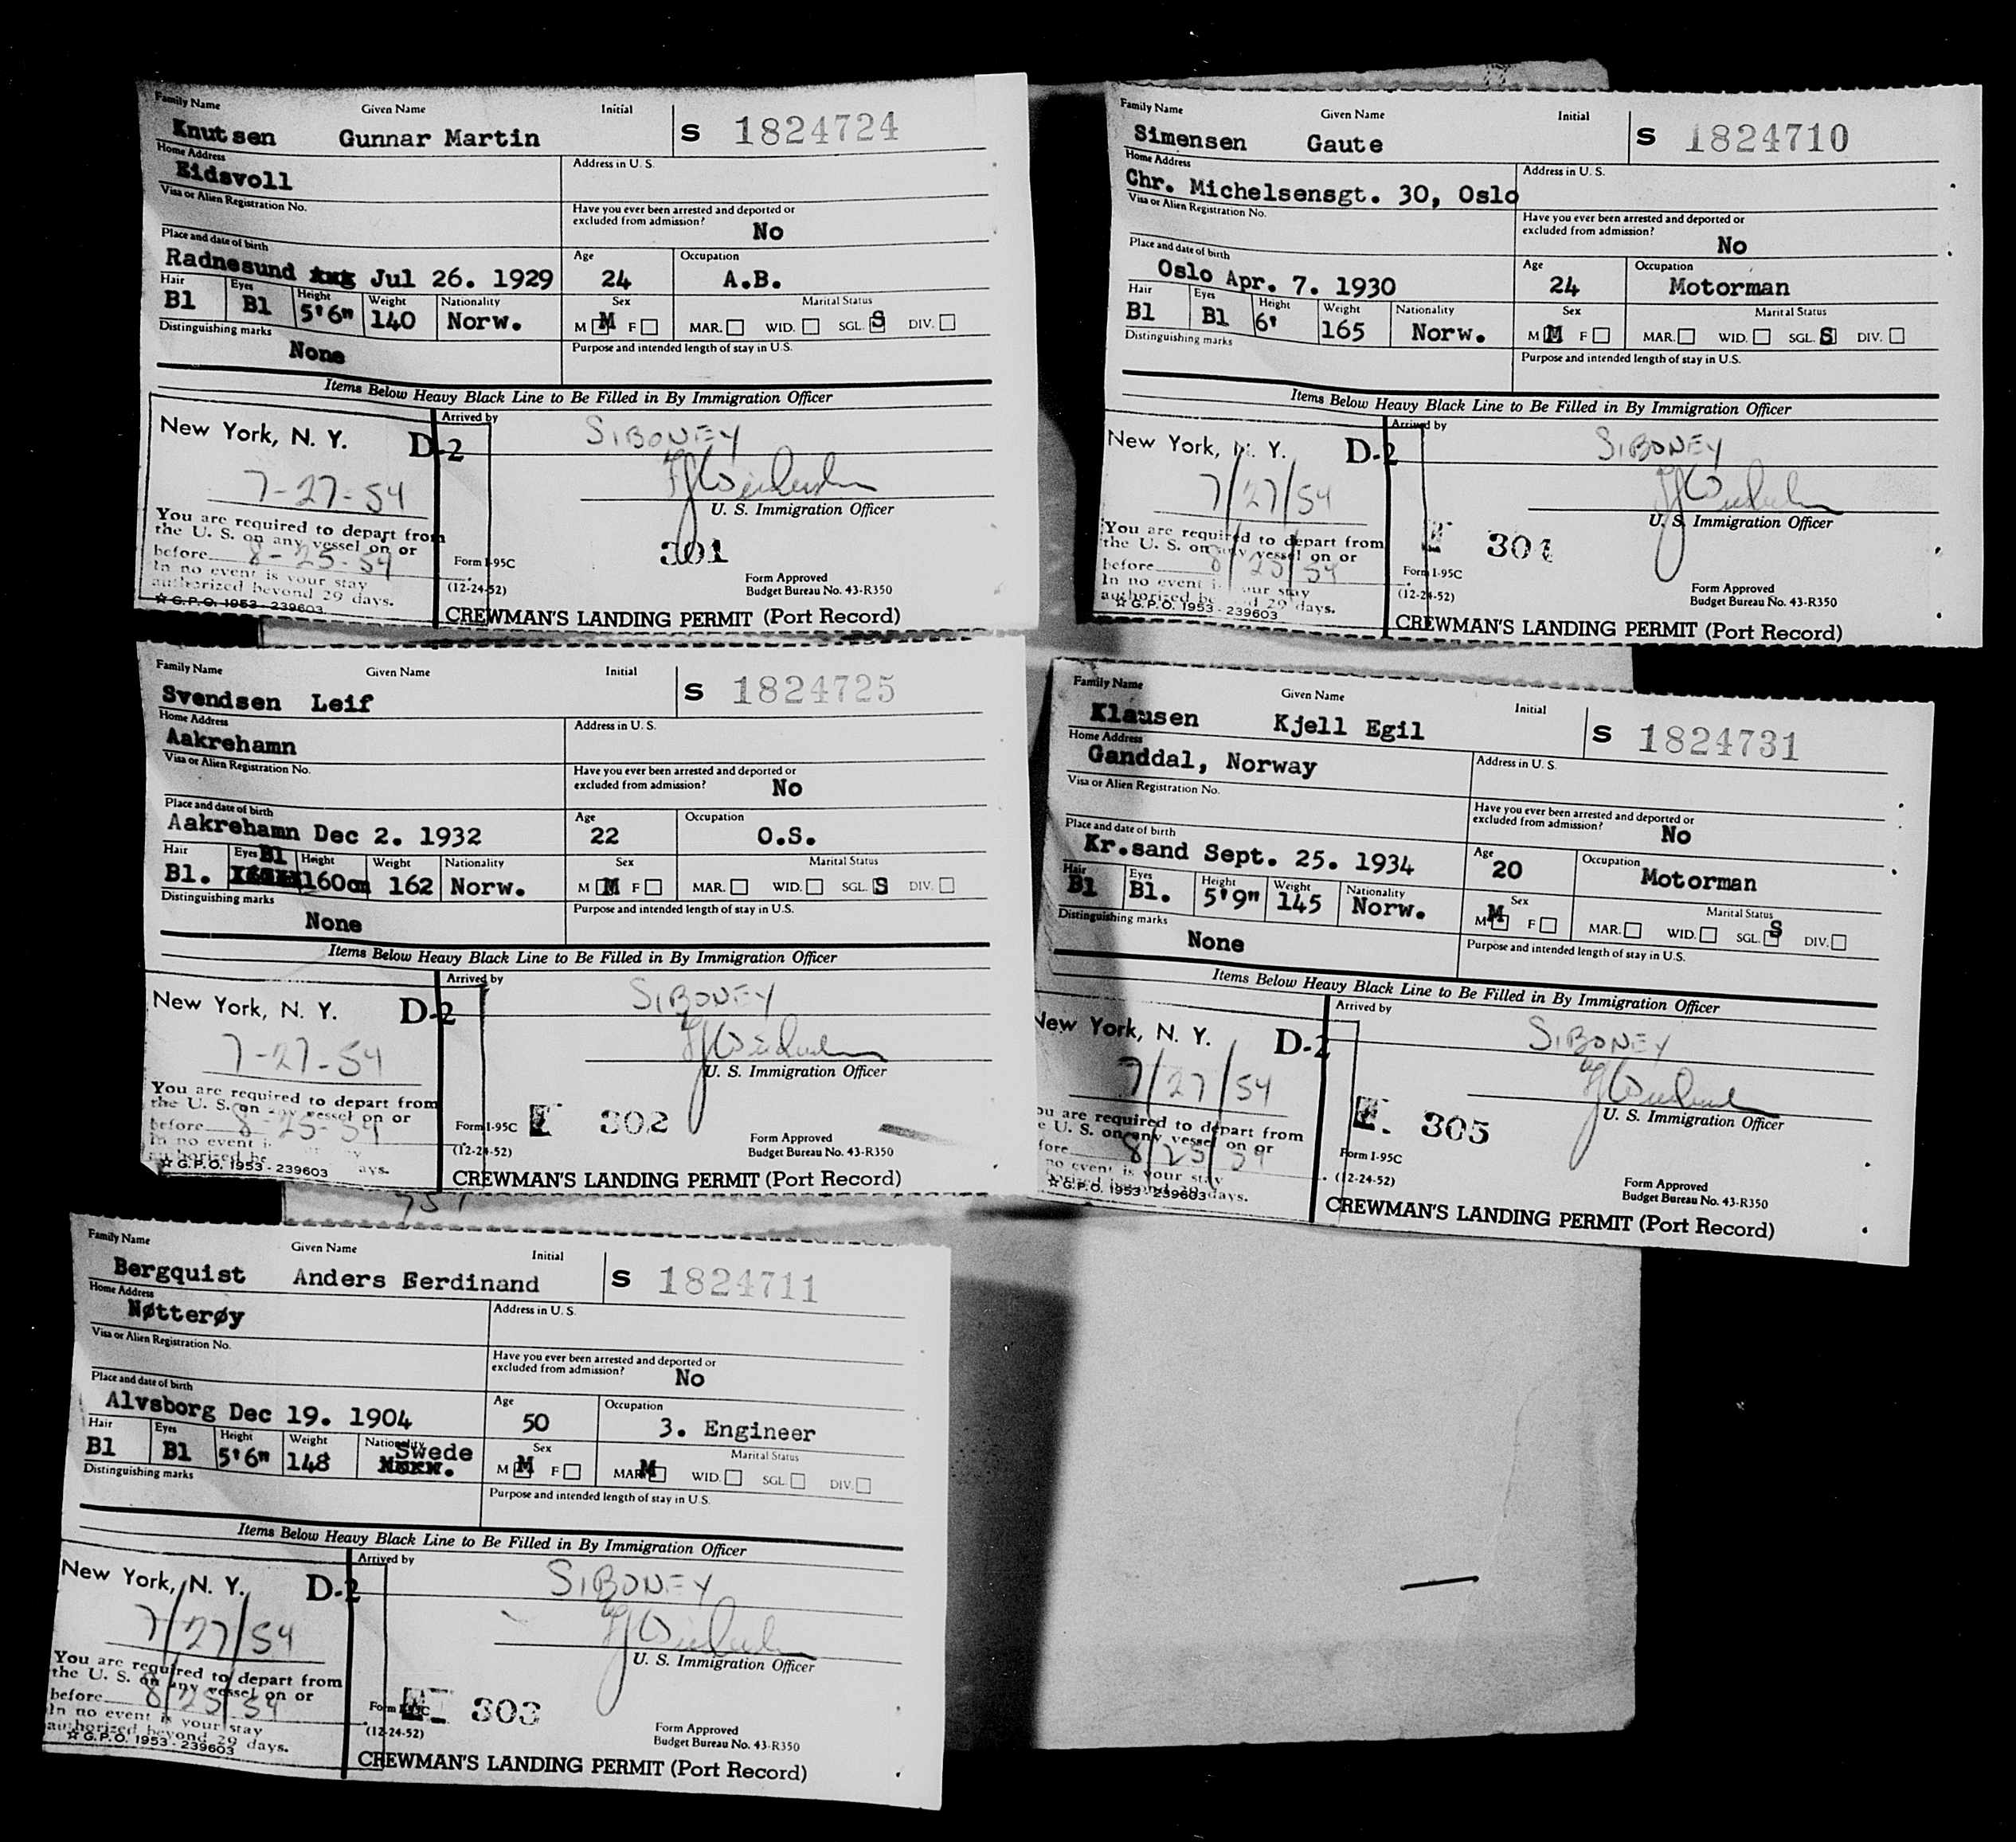 Family Name Given Name Initial
Knutsen Gunnar Martin S 1824724
Home Address Address in U. S.
Eidsvoll
Visa or Alien Registration No. Have you ever been arrested and deported or
excluded from admission? No
Place and date of birth Age Occupation
Radnesund Jul 26. 1929 24 A.B.
Hair Eyes Height Weight Nationality Sex Marital Status
Bl Bl 5'6" 140 Norw. M M F MAR. WID. SGL. S DIV.
Distinguishing marks Purpose and intended length of stay in U.S.
None
Items Below Heavy Black Line to Be Filled in By Immigration Officer
New York, N. Y. D-2 Arrived by SIBONEY
7-27-54
U. S. Immigration Officer
You are required to depart from
the U. S. on any vessel on or
before 8-25-54
In no event is your stay
authorized beyond 29 days.
☆ G.P.O. 1953 - 239603
Form I-95C 301
(12-24-52) Form Approved
Budget Bureau No. 43-R350
CREWMAN'S LANDING PERMIT (Port Record)
Family Name Given Name Initial
Simensen Gaute S 1824710
Home Address Address in U. S.
Chr. Michelsensgt. 30, Oslo
Visa or Alien Registration No. Have you ever been arrested and deported or
excluded from admission? No
Place and date of birth Age Occupation
Oslo Apr. 7. 1930 24 Motorman
Hair Eyes Height Weight Nationality Sex Marital Status
Bl Bl 6' 165 Norw. M M F MAR. WID. SGL. S DIV.
Distinguishing marks Purpose and intended length of stay in U.S.
Items Below Heavy Black Line to Be Filled in By Immigration Officer
New York, N. Y. D-2 Arrived by SIBONEY
7/27/54
U. S. Immigration Officer
You are required to depart from
the U. S. on any vessel on or
before 8/25/54
In no event your stay
authorized 29 days.
☆ G.P.O. 1953 - 239603
Form I-95C
(12-24-52) Form Approved
Budget Bureau No. 43-R350
CREWMAN'S LANDING PERMIT (Port Record)
Family Name Given Name Initial
Svendsen Leif S 1824725
Home Address Address in U. S.
Aakrehamn
Visa or Alien Registration No. Have you ever been arrested and deported or
excluded from admission? No
Place and date of birth Age Occupation
Aakrehamn Dec 2. 1932 22 O.S.
Hair Eyes Height Weight Nationality Sex Marital Status
Bl. Bl 160cm 162 Norw. M M F MAR. WID. SGL. S DIV.
Distinguishing marks Purpose and intended length of stay in U.S.
None
Items Below Heavy Black Line to Be Filled in By Immigration Officer
New York, N. Y. D-2 Arrived by SIBONEY
7-27-54
U. S. Immigration Officer
You are required to depart from
the U. S. on any vessel on or
before 8-25-54
In no event
☆ G.P.O. 1953 - 239603
Form I-95C E 302
(12-24-52) Form Approved
Budget Bureau No. 43-R350
CREWMAN'S LANDING PERMIT (Port Record)
Family Name Given Name Initial
Klausen Kjell Egil S 1824731
Home Address Address in U. S.
Ganddal, Norway
Visa or Alien Registration No. Have you ever been arrested and deported or
excluded from admission? No
Place and date of birth Age Occupation
Kr.sand Sept. 25. 1934 20 Motorman
Hair Eyes Height Weight Nationality Sex Marital Status
Bl Bl. 5'9" 145 Norw. M M F MAR. WID. SGL. S DIV.
Distinguishing marks Purpose and intended length of stay in U.S.
None
Items Below Heavy Black Line to Be Filled in By Immigration Officer
New York, N. Y. D-2 Arrived by SIBONEY
7/27/54
U. S. Immigration Officer
ou are required to depart from
e U. S. on any vessel on or
fore 8/25/54
no event is your stay
29 days.
☆ G.P.O. 1953 - 239603
Form I-95C E. 305
(12-24-52) Form Approved
Budget Bureau No. 43-R350
CREWMAN'S LANDING PERMIT (Port Record)
Family Name Given Name Initial
Bergquist Anders Ferdinand S 1824711
Home Address Address in U. S.
Nøtterøy
Visa or Alien Registration No. Have you ever been arrested and deported or
excluded from admission? No
Place and date of birth Age Occupation
Alvsborg Dec 19. 1904 50 3. Engineer
Hair Eyes Height Weight Nationality Sex Marital Status
Bl Bl 5'6" 148 Swede M M F MAR. M WID. SGL. DIV.
Distinguishing marks Purpose and intended length of stay in U.S.
Items Below Heavy Black Line to Be Filled in By Immigration Officer
New York, N. Y. D-2 Arrived by SIBONEY
7/27/54
U. S. Immigration Officer
You are required to depart from
the U. S. on any vessel on or
before 8/25/54
In no event is your stay
authorized beyond 29 days.
☆ G.P.O. 1953 - 239603
Form I-95C 303
(12-24-52) Form Approved
Budget Bureau No. 43-R350
CREWMAN'S LANDING PERMIT (Port Record)